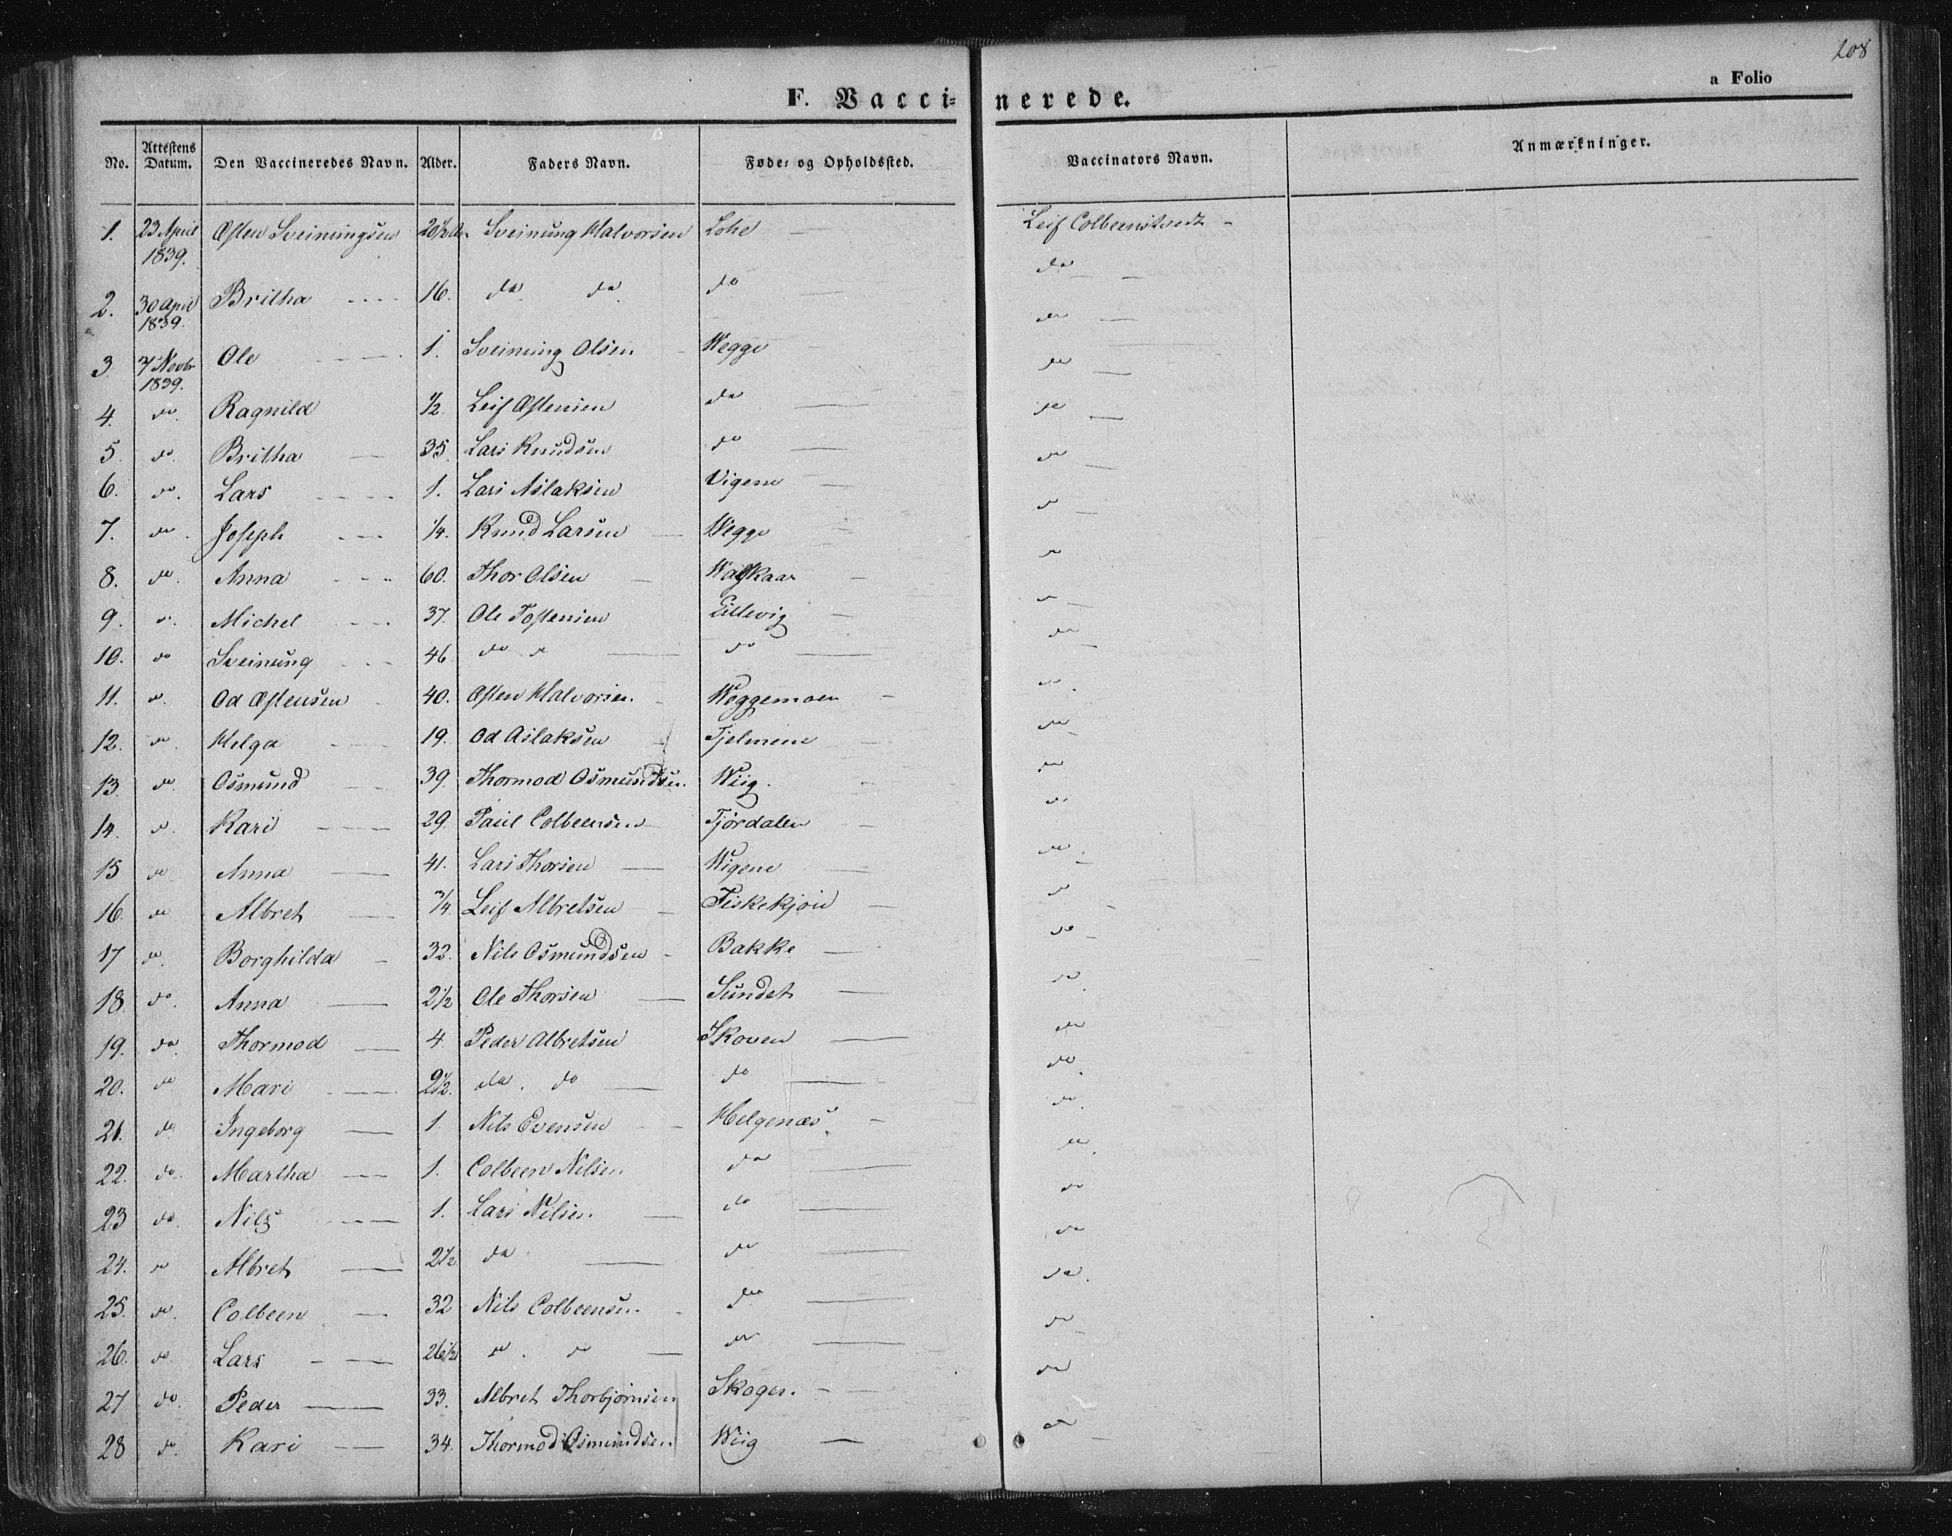 208
a Folio
F. Vaccinerede.
No. Attestens Datum. Den Vaccineredes Navn. Alder. Faders Navn. Føde- og Opholdssted. Vaccinators Navn. Anmærkninger.
1. 23 April 1839. Østen Sveinungsen Sveinung Halvorsen Lohe Leif Colbeenstvedt
2. 30 April 1839. Britha 16. do do do do
3. 7 Novbr 1839. Ole 1. Sveinung Olsen Wegge do
4. do. Ragnild 1/2. Leif Østensen do do
5. do. Britha 35. Lars Knudsen do do
6. do. Lars 1. Lars Aslaksen Vigene do
7. do. Joseph 1/4. Knud Larsen Wegge do
8. do. Anna 60. Thor Olsen do
9. do. Michel 37. Ole Tostensen Lillevig do
10. do Sveinung 46 do do do do
11. do. Od Østensen 40. Østen Halvorsen. Weggemoen do.
12. do. Helga 19. Od Aslaksen Tjelmene do
13. do. Osmund 39. Thormod Osmundsen. Wiig. do
14. do. Kari 29. Paul Colbeensen Tjørdalen do.
15 do Anna 41. Lars Thorsen Wigene do.
16. do Albret 3/4. Leif Albretsen Fiskekjøn do
17 do. Borghilda 32. Nils Osmundsen Bakke do
18. do. Anna 2 1/2 Ole Thorsen Sundet do
19. do. Thormod 4 Peder Albretsen Skoven do
20. do Mari 2 1/2. do. do do do.
21. do Ingeborg 1 Nils Evensen Helgenæs. do.
22. do. Martha 1. Colbeen Nilsen do do.
23 do. Nils 1. Lars Nilsen. do do
24. do Albret 2 1/2 do do do
25. do. Colbeen 32 Nils Colbeensen. do do.
26. do Lars 26 1/2 do. do do do
27 do. Peder 33. Albret Thorbjørnsen Skogen. do
28 do. Kari 34. Thormod Osmundsen Wiig do